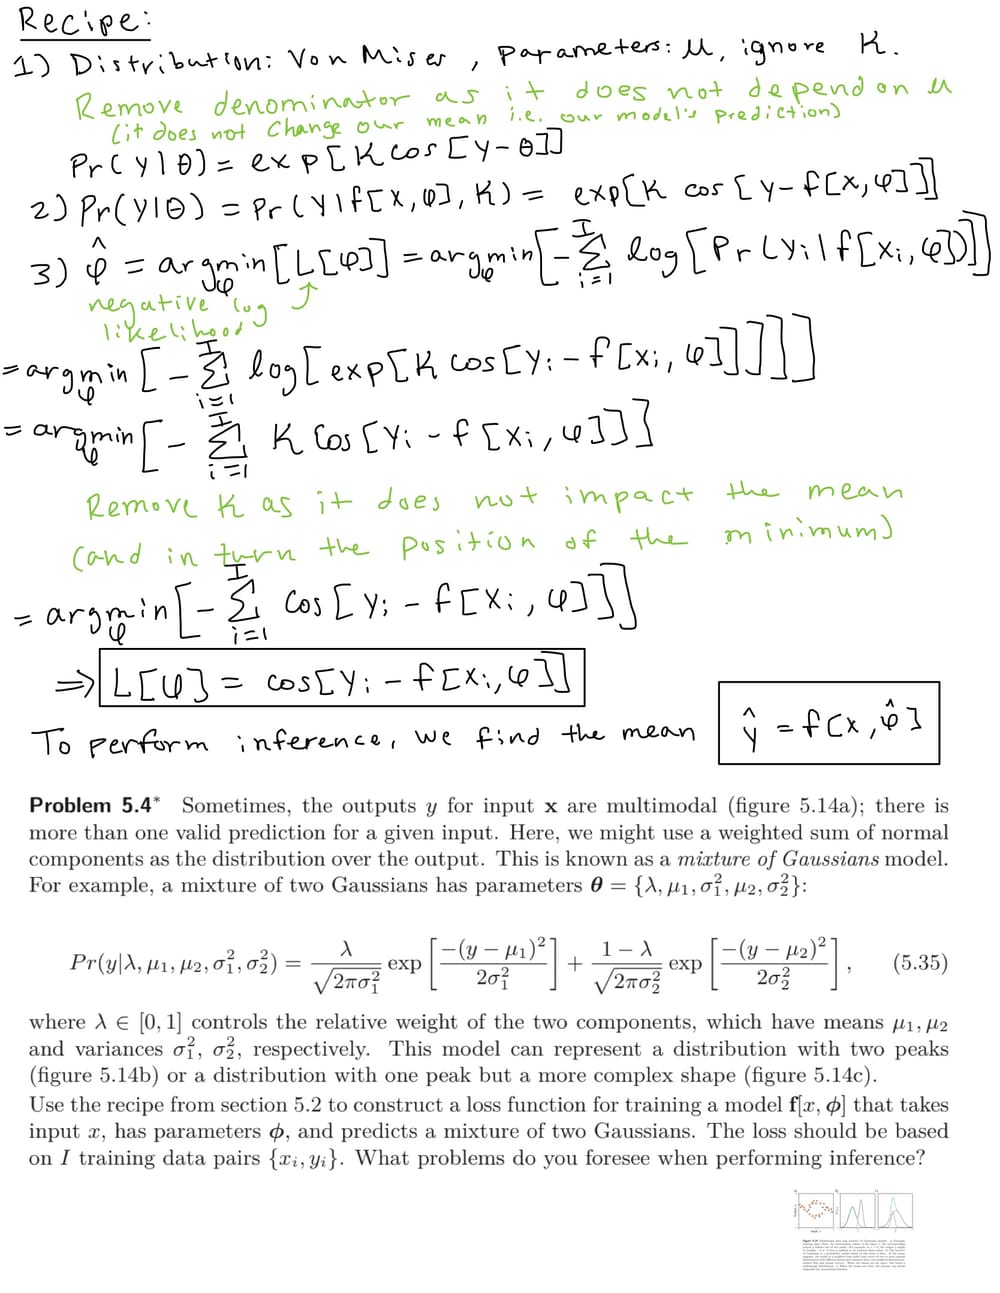 Recipe:
1) Distribution: Von Mises, Parameters: μ, ignore K.
Remove denominator as it does not depend on μ
(it does not change our mean i.e. our model's prediction)
Pr(y|θ) = exp[K cos[y-θ]]
2) Pr(y|θ) = Pr(y|f[x,φ], K) = exp[K cos[y-f[x,φ]]]
3) φ̂ = argmin_φ[L[φ]] = argmin_φ[-Σ_{i=1}^{I} log[Pr(y_i|f[x_i,φ])]]
negative log
likelihood
= argmin_φ[-Σ_{i=1}^{I} log[exp[K cos[y_i - f[x_i, φ]]]]]
= argmin_φ[-Σ_{i=1}^{I} K cos[y_i - f[x_i, φ]]]
Remove K as it does not impact the mean
(and in turn the position of the minimum)
= argmin_φ[-Σ_{i=1}^{I} cos[y_i - f[x_i, φ]]]
⇒ L[φ] = cos[y_i - f[x_i, φ]]
To perform inference, we find the mean ŷ = f[x, φ̂]
Problem 5.4* Sometimes, the outputs y for input x are multimodal (figure 5.14a); there is
more than one valid prediction for a given input. Here, we might use a weighted sum of normal
components as the distribution over the output. This is known as a mixture of Gaussians model.
For example, a mixture of two Gaussians has parameters θ = {λ, μ₁, σ₁², μ₂, σ₂²}:
Pr(y|λ, μ₁, μ₂, σ₁², σ₂²) = λ/√(2πσ₁²) exp[-(y − μ₁)²/2σ₁²] + (1 − λ)/√(2πσ₂²) exp[-(y − μ₂)²/2σ₂²], (5.35)
where λ ∈ [0, 1] controls the relative weight of the two components, which have means μ₁, μ₂
and variances σ₁², σ₂², respectively. This model can represent a distribution with two peaks
(figure 5.14b) or a distribution with one peak but a more complex shape (figure 5.14c).
Use the recipe from section 5.2 to construct a loss function for training a model f[x, φ] that takes
input x, has parameters φ, and predicts a mixture of two Gaussians. The loss should be based
on I training data pairs {x_i, y_i}. What problems do you foresee when performing inference?